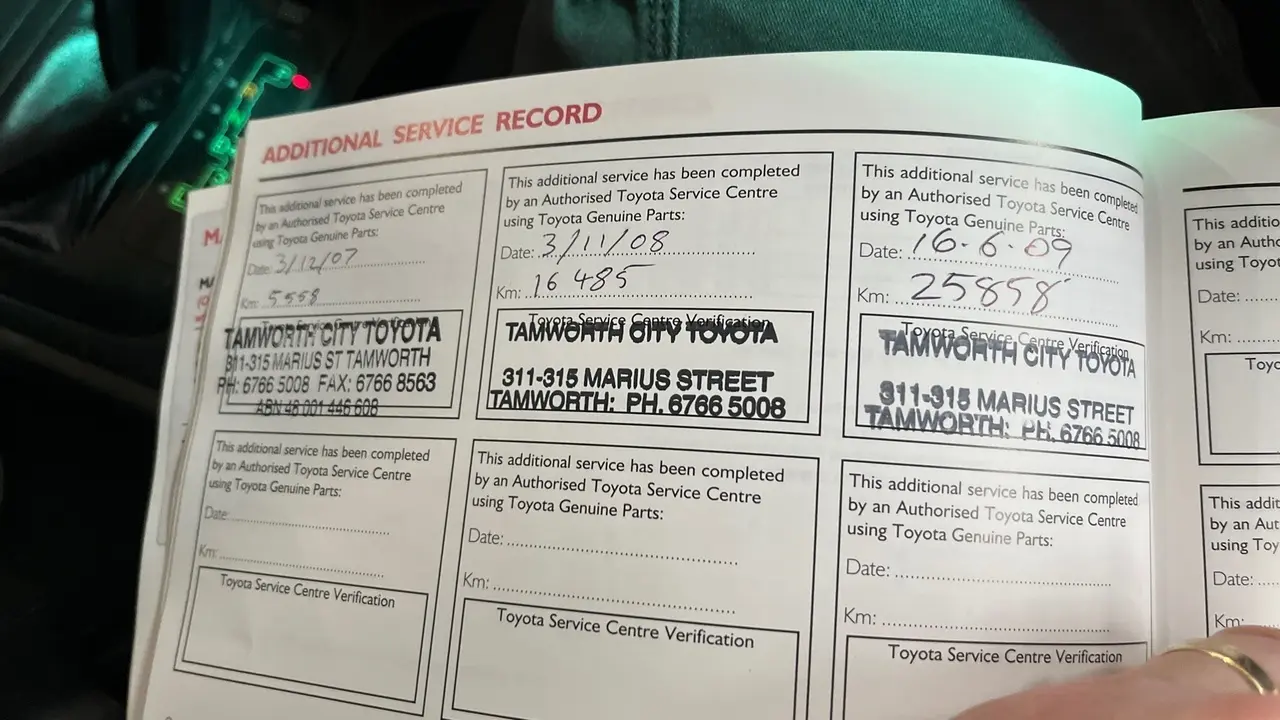 ADDITIONAL SERVICE RECORD
This additional service has been completed
by an Authorised Toyota Service Centre
using Toyota Genuine Parts:
Date: 3/12/07
Km: 5558
TAMWORTH CITY TOYOTA
311-315 MARIUS ST TAMWORTH
PH: 6766 5008 FAX: 6766 8563
ABN 48 001 446 608
This additional service has been completed
by an Authorised Toyota Service Centre
using Toyota Genuine Parts:
Date: 3/11/08
Km: 16 485
Toyota Service Centre Verification
TAMWORTH CITY TOYOTA
311-315 MARIUS STREET
TAMWORTH: PH. 6766 5008
This additional service has been completed
by an Authorised Toyota Service Centre
using Toyota Genuine Parts:
Date: 16.6.09
Km: 25858
Toyota Service Centre Verification
TAMWORTH CITY TOYOTA
311-315 MARIUS STREET
TAMWORTH: PH. 6766 5008
This additional service has been completed
by an Authorised Toyota Service Centre
using Toyota Genuine Parts:
Date:
Km:
Toyota Service Centre Verification
This additional service has been completed
by an Authorised Toyota Service Centre
using Toyota Genuine Parts:
Date:
Km:
Toyota Service Centre Verification
This additional service has been completed
by an Authorised Toyota Service Centre
using Toyota Genuine Parts:
Date:
Km:
Toyota Service Centre Verification
This additio
by an Auth
using Toyot
Date:
Km:
Toyo
This addit
by an Au
using Toy
Date:
Km: